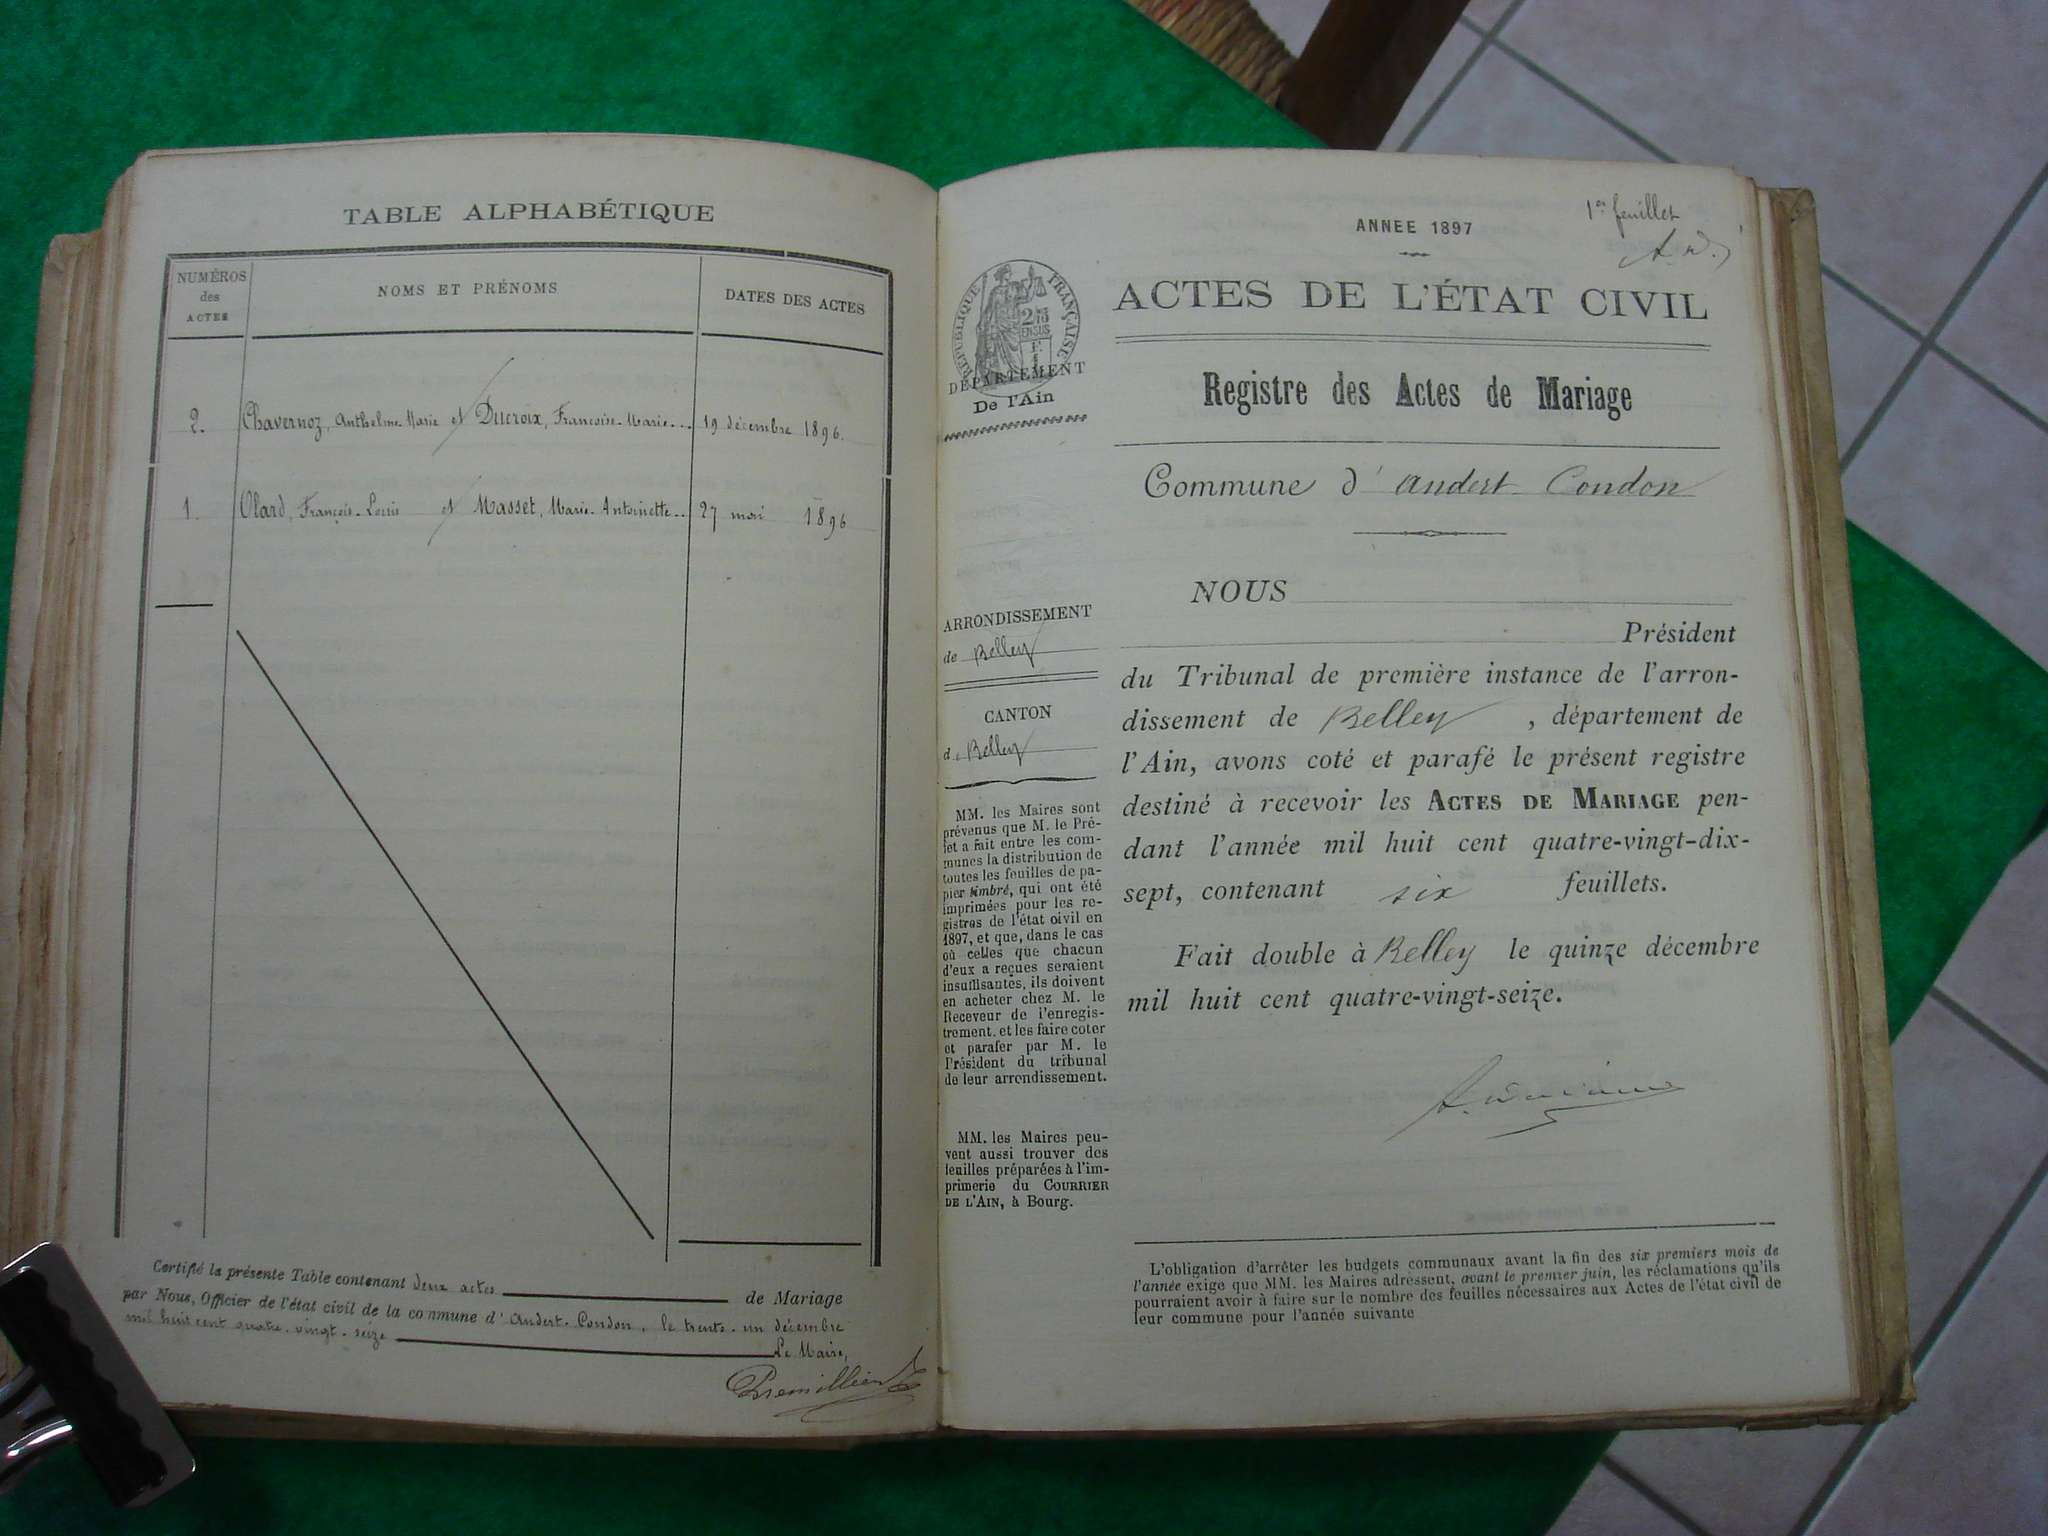 TABLE ALPHABÉTIQUE
NUMÉROS des ACTES
NOMS ET PRÉNOMS
DATES DES ACTES
2. Chavernoz, Anthelme Marie et Ducroix, Françoise-Marie 19 décembre 1896.
1. Olard, François-Louis et Masset, Marie-Antoinette 27 mai 1896
Certifié la présente Table contenant deux actes de Mariage
par Nous, Officier de l'état civil de la commune d'Andert-Condon, le trente-un décembre
mil huit cent quatre-vingt-seize
Le Maire,
1er feuillet
ANNEE 1897
RÉPUBLIQUE FRANÇAISE
DÉPARTEMENT
De l'Ain
ACTES DE L'ÉTAT CIVIL
Registre des Actes de Mariage
Commune d'Andert-Condon
ARRONDISSEMENT
de Belley
CANTON
d. Belley
MM. les Maires sont
prévenus que M. le Pré-
fet a fait entre les com-
munes la distribution de
toutes les feuilles de pa-
pier timbré, qui ont été
imprimées pour les re-
gistres de l'état civil en
1897, et que, dans le cas
où celles que chacun
d'eux a reçues seraient
insuffisantes, ils doivent
en acheter chez M. le
Receveur de l'enregis-
trement, et les faire coter
et parafer par M. le
Président du tribunal
de leur arrondissement.
MM. les Maires peu-
vent aussi trouver des
feuilles préparées à l'im-
primerie du COURRIER
DE L'AIN, à Bourg.
NOUS
Président
du Tribunal de première instance de l'arron-
dissement de Belley, département de
l'Ain, avons coté et parafé le présent registre
destiné à recevoir les ACTES DE MARIAGE pen-
dant l'année mil huit cent quatre-vingt-dix-
sept, contenant six feuillets.
Fait double à Belley le quinze décembre
mil huit cent quatre-vingt-seize.
L'obligation d'arrêter les budgets communaux avant la fin des six premiers mois de
l'année exige que MM. les Maires adressent, avant le premier juin, les réclamations qu'ils
pourraient avoir à faire sur le nombre des feuilles nécessaires aux Actes de l'état civil de
leur commune pour l'année suivante